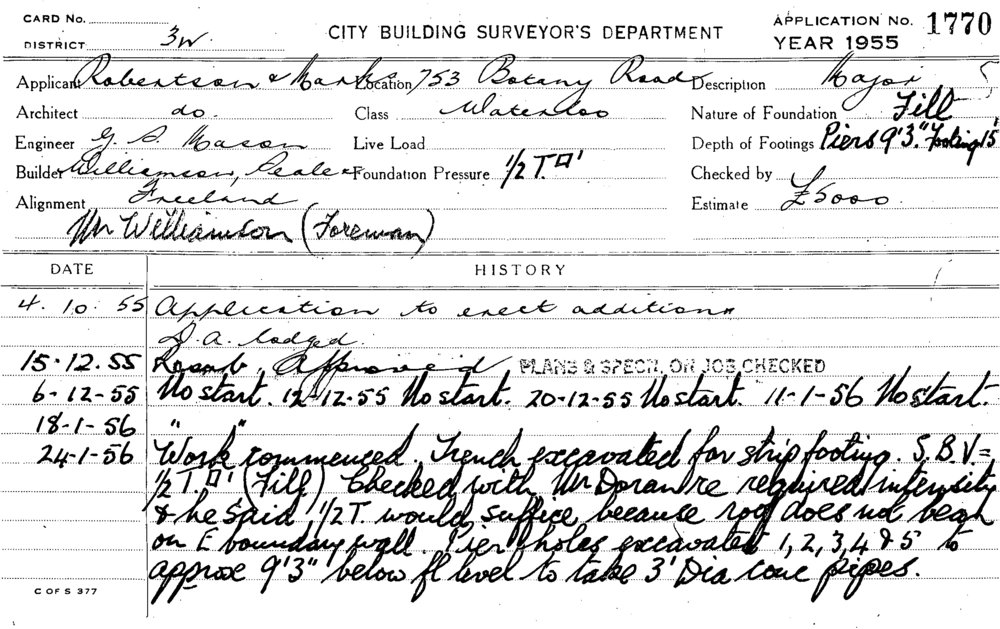 CARD No.
DISTRICT 3W.
CITY BUILDING SURVEYOR'S DEPARTMENT
APPLICATION No. 1770
YEAR 1955
Applicant Robertson & Marks Location 753 Botany Road Description Major
Architect do. Class Waterloo Nature of Foundation Fill
Engineer G. S. Mason Live Load Depth of Footings Piers 9'3". Footing 15"
Builder Williamson, Foundation Pressure 1/2 T.□' Checked by
Alignment Freeland Estimate £5000.
Mr Williamson (Foreman)
DATE HISTORY
4. 10. 55 Application to erect additions
D.A. lodged.
15.12.55 Approved PLANS & SPECN. ON JOB CHECKED
6-12-55 No start. 12-12-55 No start. 20-12-55 No start. 11-1-56 No start.
18-1-56 " "
24-1-56 Work commenced. Trench excavated for strip footing. S.B.V. =
1/2 T.□' (Fill) Checked with Mr Doran re required intensity
& he said 1/2 T. would suffice because roof does not bear
on E boundary wall. Pier holes excavated 1, 2, 3, 4 & 5 to
approx 9'3" below fl level to take 3' Dia conc pipes.
C OF S 377